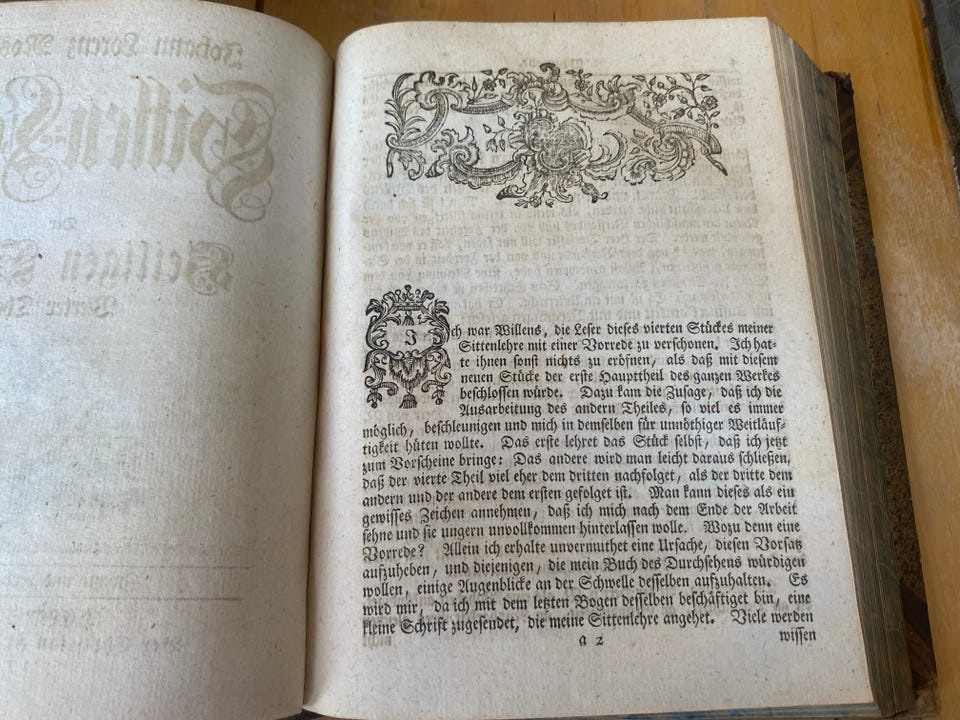 Ich war Willens, die Leser dieses vierten Stückes meiner
Sittenlehre mit einer Vorrede zu verschonen. Ich hat-
te ihnen sonst nichts zu eröfnen, als daß mit diesem
neuen Stücke der erste Haupttheil des ganzen Werkes
beschlossen würde. Dazu kam die Zusage, daß ich die
Ausarbeitung des andern Theiles, so viel es immer
möglich, beschleunigen und mich in demselben für unnöthiger Weitläuf-
tigkeit hüten wollte. Das erste lehret das Stück selbst, daß ich jetzt
zum Vorscheine bringe: Das andere wird man leicht daraus schließen,
daß der vierte Theil viel eher dem dritten nachfolget, als der dritte dem
andern und der andere dem ersten gefolget ist. Man kann dieses als ein
gewisses Zeichen annehmen, daß ich mich nach dem Ende der Arbeit
sehne und sie ungern unvollkommen hinterlassen wolle. Wozu denn eine
Vorrede? Allein ich erhalte unvermuthet eine Ursache, diesen Vorsatz
aufzuheben, und diejenigen, die mein Buch des Durchsehens würdigen
wollen, einige Augenblicke an der Schwelle desselben aufzuhalten. Es
wird mir, da ich mit dem letzten Bogen desselben beschäftiget bin, eine
kleine Schrift zugesendet, die meine Sittenlehre angehet. Viele werden
a 2 wissen